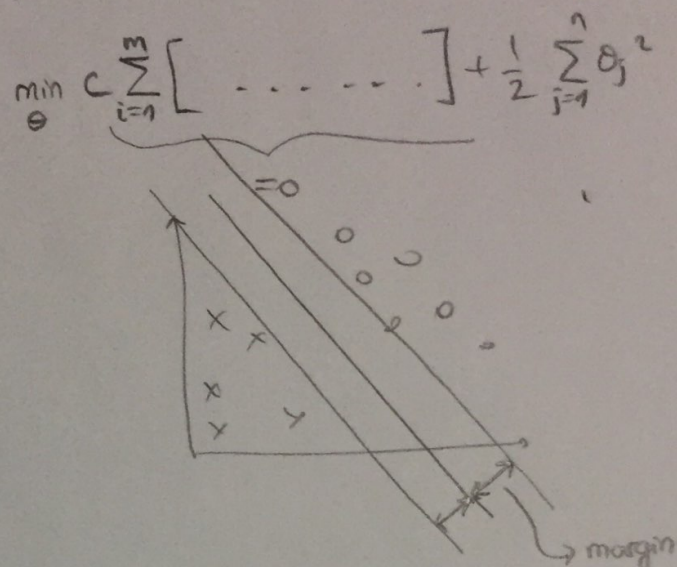 min θ C Σ i=1 m [ . . . . . . . ] + 1/2 Σ j=1 n θj²
=0
margin